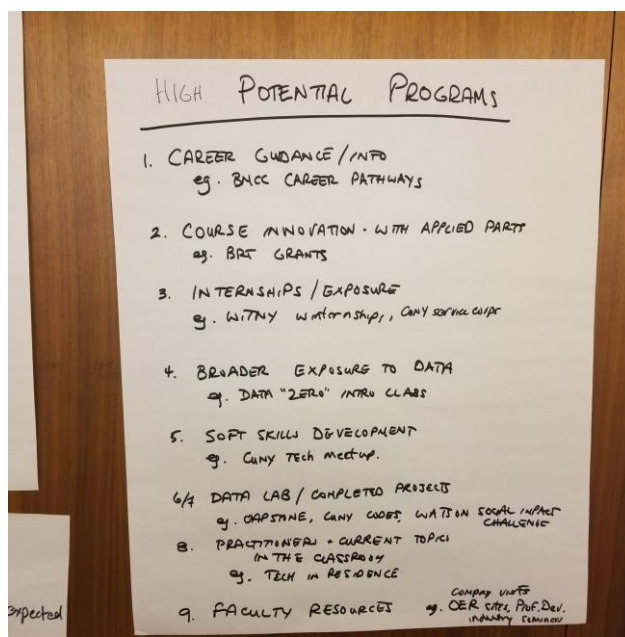 HIGH POTENTIAL PROGRAMS
1. CAREER GUIDANCE / INFO
eg. BMCC CAREER PATHWAYS
2. COURSE INNOVATION - WITH APPLIED PARTS
eg. BRT GRANTS
3. INTERNSHIPS / EXPOSURE
eg. WITNY Winternships, CUNY service corps
4. BROADER EXPOSURE TO DATA
eg. DATA "ZERO" INTRO CLASS
5. SOFT SKILLS DEVELOPMENT
eg. CUNY TECH Meetup.
6/7 DATA LAB / COMPLETED PROJECTS
eg. CAPSTONE, CUNY CODES, WATSON SOCIAL IMPACT
CHALLENGE
8. PRACTITIONERS + CURRENT TOPICS
IN THE CLASSROOM
eg. TECH IN RESIDENCE
company visits
9. FACULTY RESOURCES eg. OER sites, Prof. Dev.
industry seminars
expected